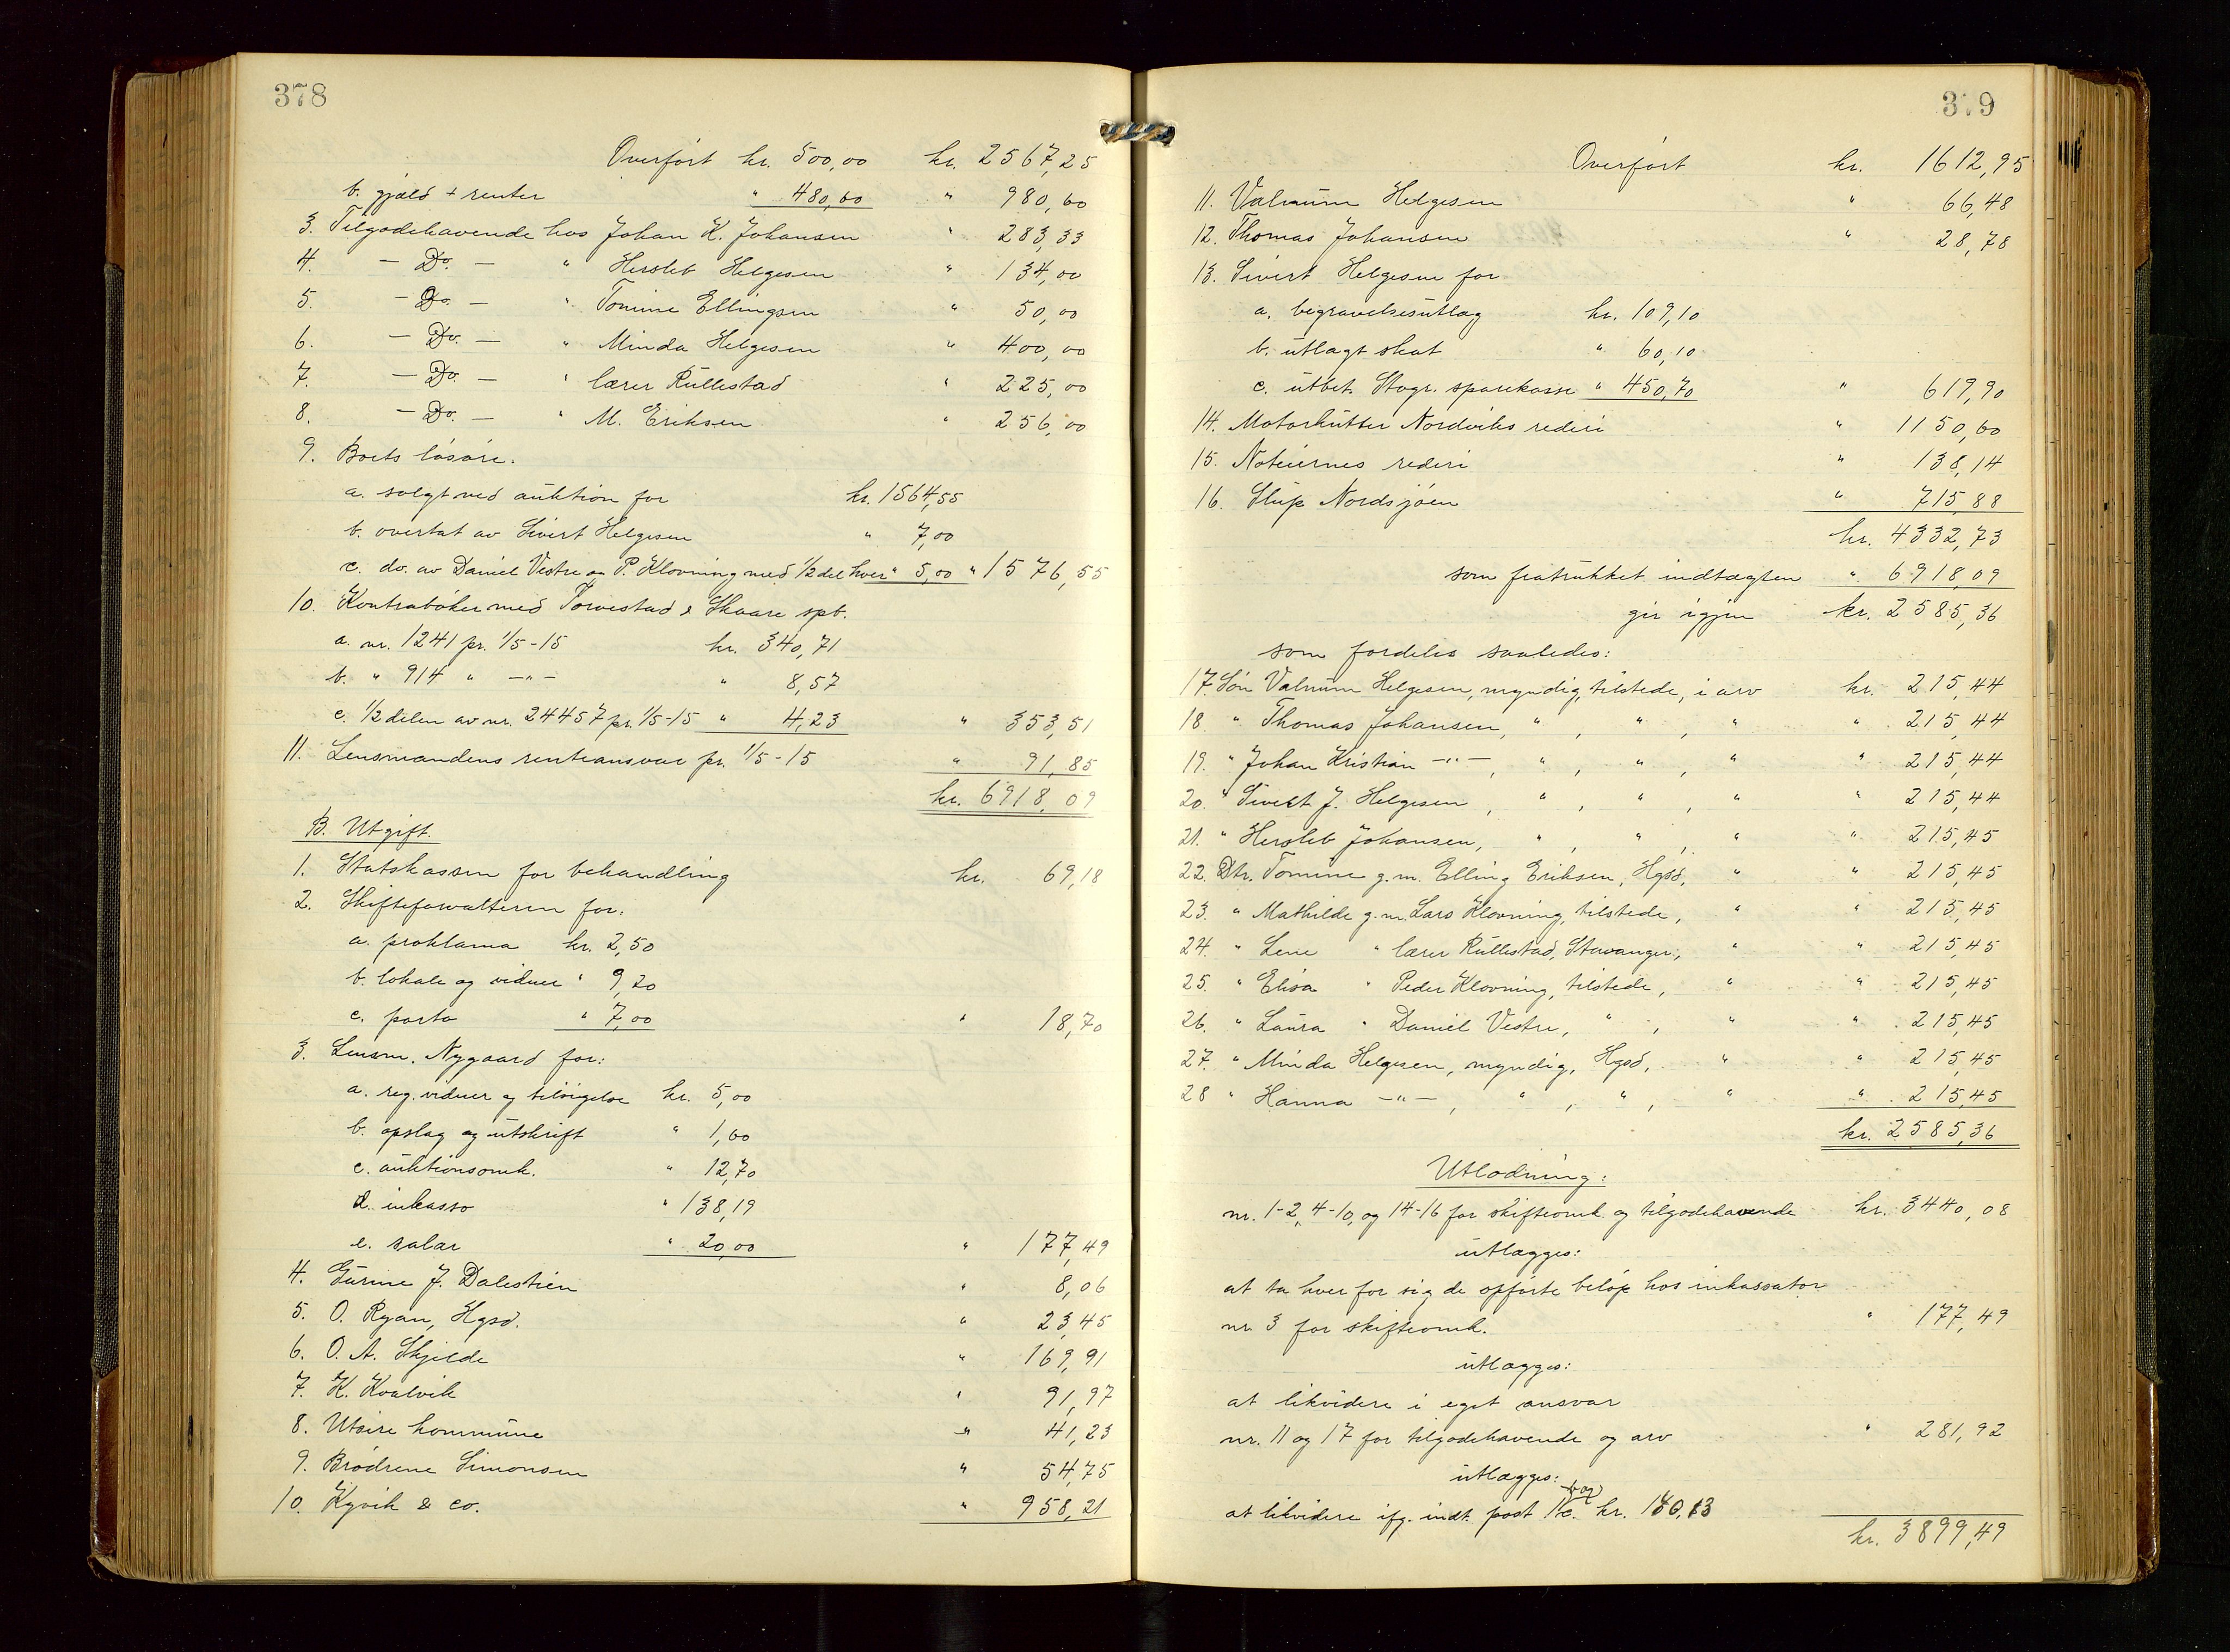 378
Overført kr. 500,00 kr. 2567,25
b. gjæld + renter " 480,60 " 980,60
3. Tilgodehavende hos Johan K. Johansen " 283,33
4. - Do. - " Hersleb Helgesen " 134,00
5. - Do. - " Tomine Ellingsen " 50,00
6. - Do. - " Minda Helgesen " 400,00
7. - Do. - " lærer Rullestad " 225,00
8. - Do. - " M. Eriksen " 256,00
9. Boets løsøre.
a. solgt ved auktion for kr. 1564,55
b. overtat av Sivert Helgesen " 7,00
c. do. av Daniel Vestre og P. Klovning med 1/2 del hver " 5,00 " 1576,55
10. Kontrabøker med Torvestad & Skaare spb.
a. nr. 1241 pr. 1/5-15 kr. 340,71
b. " 914 " -"- " 8,57
c. 1/2 delen av nr. 24457 pr. 1/5-15 " 4,23 " 353,51
11. Lensmandens renteansvar pr. 1/5-15 " 91,85
kr. 6918,09
B. Utgift.
1. Statskassen for behandling kr. 69,18
2. Skifteforvalteren for:
a. proklama kr. 2,50
b. lokale og vidner " 9,20
c. porto " 7,00 " 18,70
3. Lensm. Nygaard for:
a. reg. vidner og tilsigelse kr. 5,00
b. opslag og utskrift " 1,60
c. auktionsomk. " 12,70
d. inkasso " 138,19
e. salær " 20,00 " 177,49
4. Gurine J. Dalestien " 8,06
5. O. Ryan, Hgsd. " 23,45
6. O. A. Skjelde " 169,91
7. K. Kvalvik " 91,97
8. Utsire kommune " 41,23
9. Brødrene Simonsen " 54,75
10. Kyvik & co. " 958,21
379
Overført kr. 1612,95
11. Valnum Helgesen " 66,48
12. Thomas Johansen " 28,78
13. Sivert Helgesen for
a. begravelsesutlæg kr. 109,10
b. utlagt skat " 60,10
c. utbet. Stvgr. sparekasse " 450,70 " 619,90
14. Motorkutter Nordviks rederi " 1150,60
15. Noteiernes rederi " 138,14
16. Slup Nordsjøen " 715,88
kr. 4332,73
som fratrukket indtægten " 6918,09
gir igjen kr. 2585,36
som fordeles saaledes:
17. Søn Valnum Helgesen, myndig, tilstede, i arv kr. 215,44
18. " Thomas Johansen, " , " , " " 215,44
19. " Johan Kristian -"-, " , " , " " 215,44
20. " Sivert J. Helgesen, " , " , " " 215,44
21. " Hersleb Johansen, " , " , " " 215,45
22. Dtr. Tomine g.m. Elling Eriksen, Hgsd, " " 215,45
23. " Mathilde g.m. Lars Klovning, tilstede, " " 215,45
24. " Lene " lærer Rullestad, Stavanger, " " 215,45
25. " Elisa " Peder Klovning, tilstede, " " 215,45
26. " Laura " Daniel Vestre, " , " " 215,45
27. " Minda Helgesen, myndig, Hgsd, " " 215,45
28 " Hanna -"-, " , " , " " 215,45
kr. 2585,36
Utlodning:
nr. 1-2, 4-10, og 14-16 for skifteomk. og tilgodehavende kr. 3440,08
utlægges:
at ta hver for sig de opførte beløp hos inkassator
nr. 3 for skifteomk. " 177,49
utlægges:
at likvidere i eget ansvar
nr. 11 og 17 for tilgodehavende og arv " 281,92
utlægges:
at likvidere ifg. indt. post kr.
kr. 3899,49